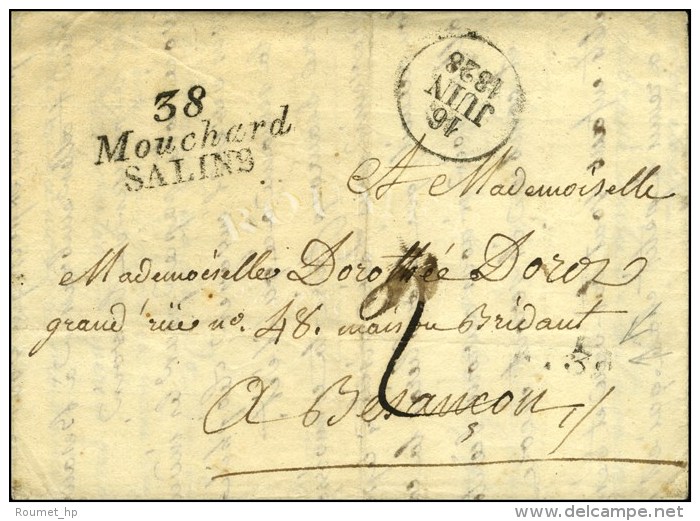 38
Mouchard
SALINS
16
JUIN
1828
A Mademoiselle
Mademoiselle Dorothée Doroz
grand'rüe no. 48. maison Bridant
2
A Besançon
Roumet_hp
©delcampe.net